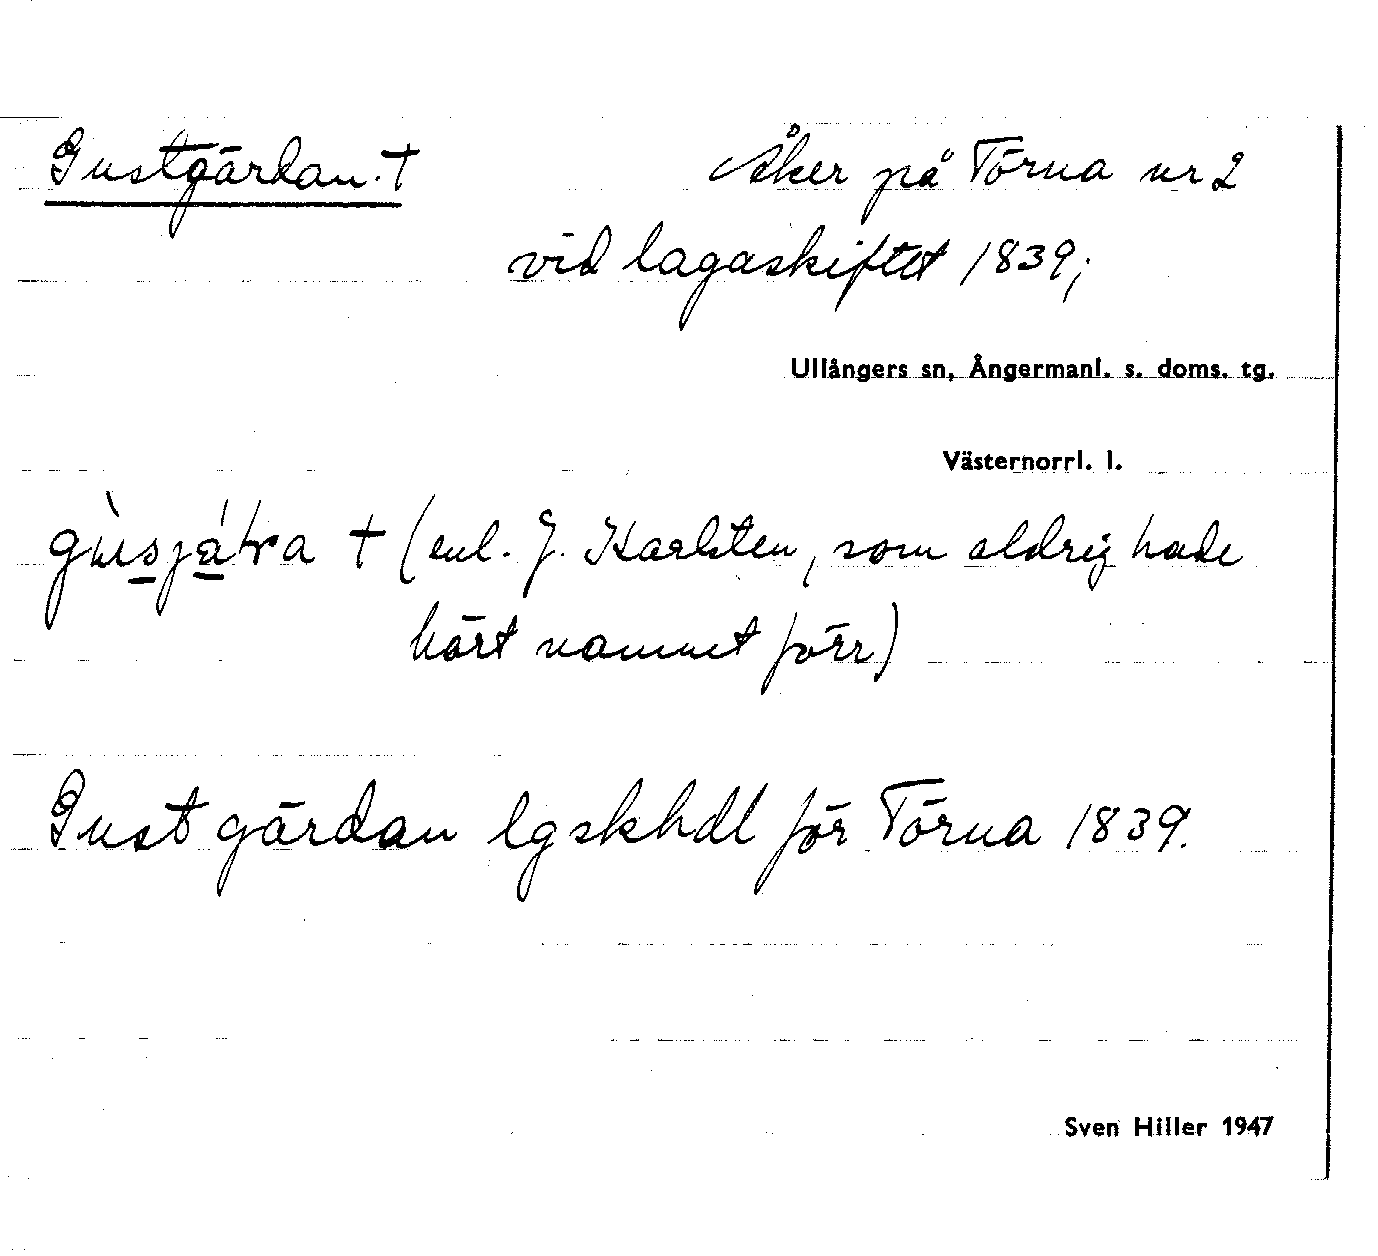 Gustgärdan. †
Åker på Törna nr 2
vid lagaskiftet 1839;
Ullångers sn, Ångermanl. s. doms. tg.
Västernorrl. l.
† (enl. J. Karlsten, som aldrig hade
hört namnet förr)
Gustgärdan lgskhdl för Törna 1839.
Sven Hiller 1947